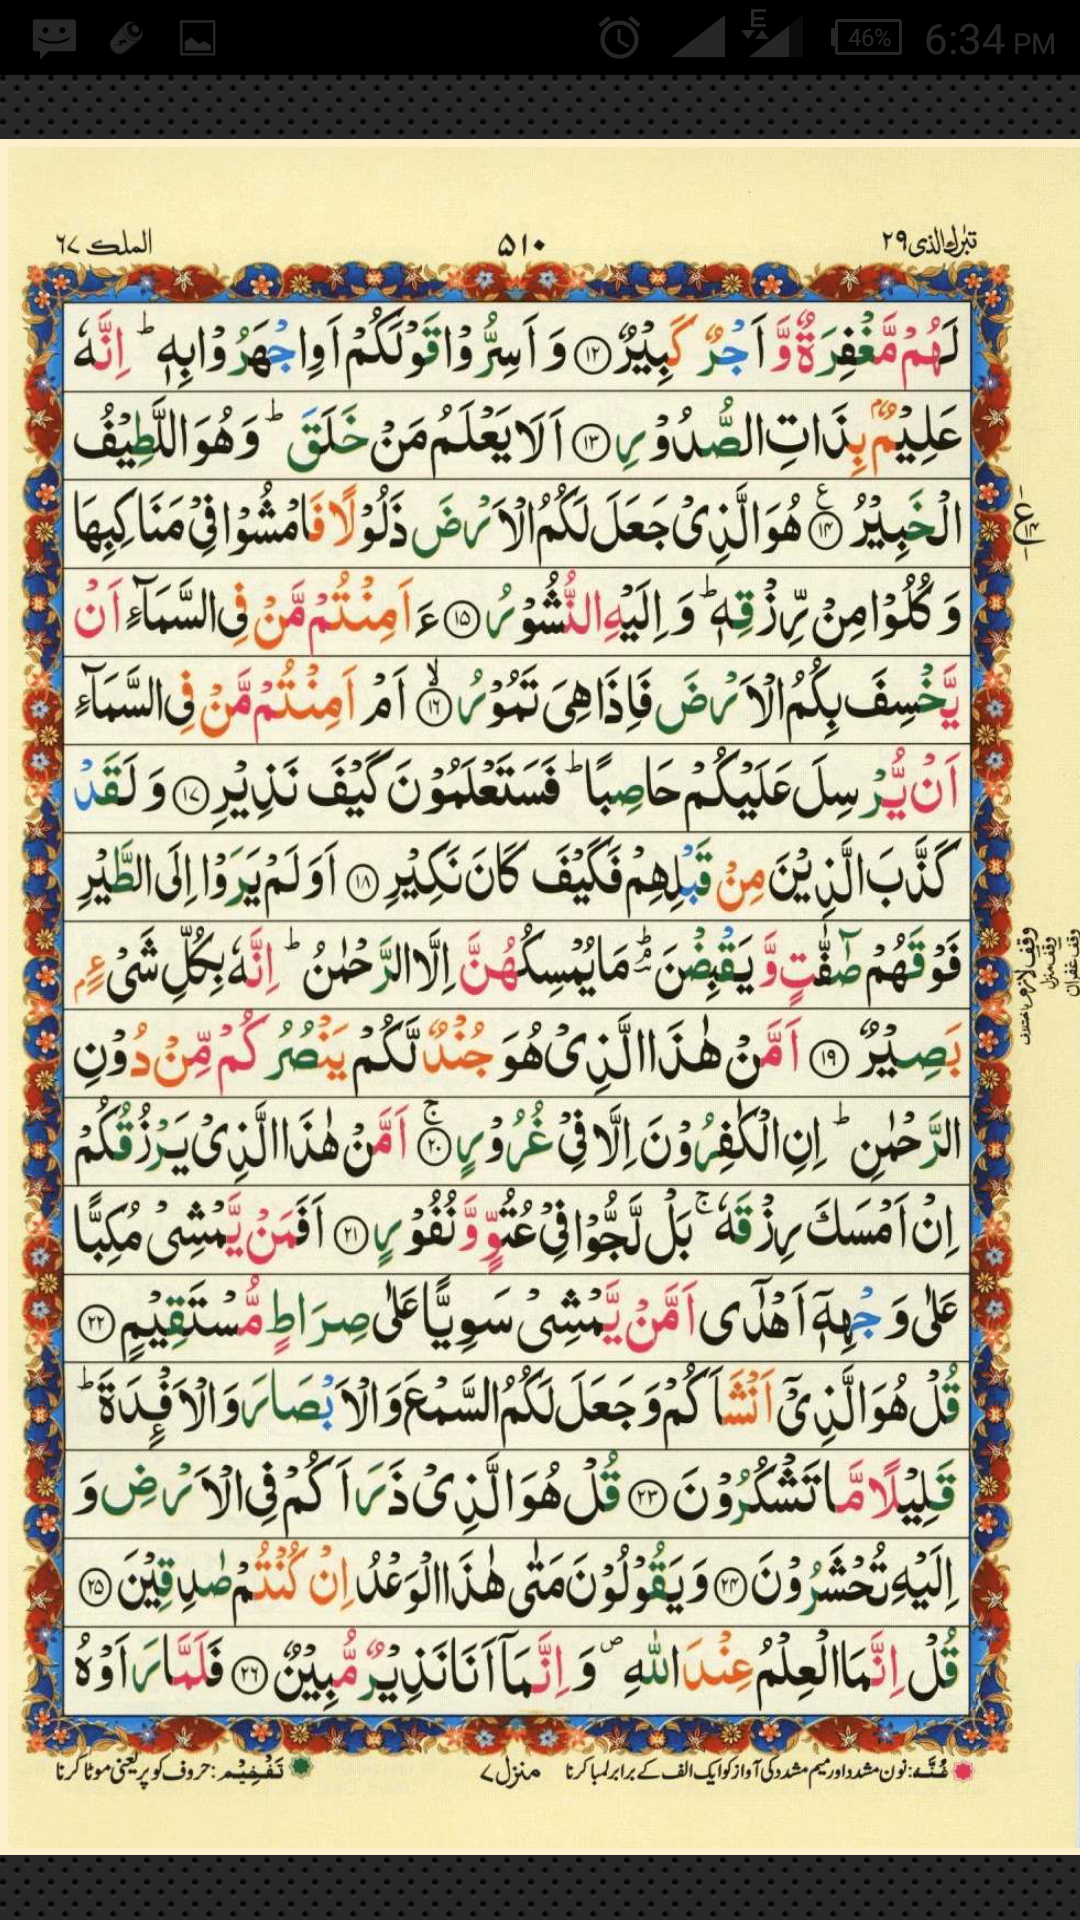 E
46%
6:34 PM
تبٰرك الذى ٢٩
۵١٠
الملك ٦٧
لَهُمْ مَّغْفِرَةٌ وَّ اَجْرٌ كَبِيْرٌ ﴿١٢﴾ وَ اَسِرُّوْا قَوْلَكُمْ اَوِ اجْهَرُوْا بِهٖ ؕ اِنَّهٗ
عَلِيْمٌۢ بِذَاتِ الصُّدُوْرِ ﴿١٣﴾ اَلَا يَعْلَمُ مَنْ خَلَقَ ؕ وَ هُوَ اللَّطِيْفُ
الْخَبِيْرُ ﴿١٤﴾ هُوَ الَّذِىْ جَعَلَ لَكُمُ الْاَرْضَ ذَلُوْلًا فَامْشُوْا فِىْ مَنَاكِبِهَا
وَ كُلُوْا مِنْ رِّزْقِهٖ ؕ وَ اِلَيْهِ النُّشُوْرُ ﴿١٥﴾ ءَاَمِنْتُمْ مَّنْ فِى السَّمَآءِ اَنْ
يَّخْسِفَ بِكُمُ الْاَرْضَ فَاِذَا هِىَ تَمُوْرُ ﴿١٦﴾ اَمْ اَمِنْتُمْ مَّنْ فِى السَّمَآءِ
اَنْ يُّرْسِلَ عَلَيْكُمْ حَاصِبًا ؕ فَسَتَعْلَمُوْنَ كَيْفَ نَذِيْرِ ﴿١٧﴾ وَ لَقَدْ
كَذَّبَ الَّذِيْنَ مِنْ قَبْلِهِمْ فَكَيْفَ كَانَ نَكِيْرِ ﴿١٨﴾ اَوَ لَمْ يَرَوْا اِلَى الطَّيْرِ
فَوْقَهُمْ صٰٓفّٰتٍ وَّ يَقْبِضْنَ ؕ مَا يُمْسِكُهُنَّ اِلَّا الرَّحْمٰنُ ؕ اِنَّهٗ بِكُلِّ شَىْءٍۭ
بَصِيْرٌ ﴿١٩﴾ اَمَّنْ هٰذَا الَّذِىْ هُوَ جُنْدٌ لَّكُمْ يَنْصُرُكُمْ مِّنْ دُوْنِ
الرَّحْمٰنِ ؕ اِنِ الْكٰفِرُوْنَ اِلَّا فِىْ غُرُوْرٍ ﴿٢٠﴾ۚ اَمَّنْ هٰذَا الَّذِىْ يَرْزُقُكُمْ
اِنْ اَمْسَكَ رِزْقَهٗ ۚ بَلْ لَّجُّوْا فِىْ عُتُوٍّ وَّ نُفُوْرٍ ﴿٢١﴾ اَفَمَنْ يَّمْشِىْ مُكِبًّا
عَلٰى وَجْهِهٖٓ اَهْدٰٓى اَمَّنْ يَّمْشِىْ سَوِيًّا عَلٰى صِرَاطٍ مُّسْتَقِيْمٍ ﴿٢٢﴾
قُلْ هُوَ الَّذِىْٓ اَنْشَاَكُمْ وَ جَعَلَ لَكُمُ السَّمْعَ وَ الْاَبْصَارَ وَ الْاَفْـِٕدَةَ ؕ
قَلِيْلًا مَّا تَشْكُرُوْنَ ﴿٢٣﴾ قُلْ هُوَ الَّذِىْ ذَرَاَكُمْ فِى الْاَرْضِ وَ
اِلَيْهِ تُحْشَرُوْنَ ﴿٢٤﴾ وَ يَقُوْلُوْنَ مَتٰى هٰذَا الْوَعْدُ اِنْ كُنْتُمْ صٰدِقِيْنَ ﴿٢٥﴾
قُلْ اِنَّمَا الْعِلْمُ عِنْدَ اللّٰهِ ۪ وَ اِنَّمَآ اَنَا نَذِيْرٌ مُّبِيْنٌ ﴿٢٦﴾ فَلَمَّا رَاَوْهُ
وقف لازم
وقف منزل
وقف غفران
غُنَّہ: نون مشدد اور میم مشدد کی آواز کو ایک الف کے برابر لمبا کرنا
منزل ٧
تَفْخِیْم: حروف کو پر یعنی موٹا کرنا